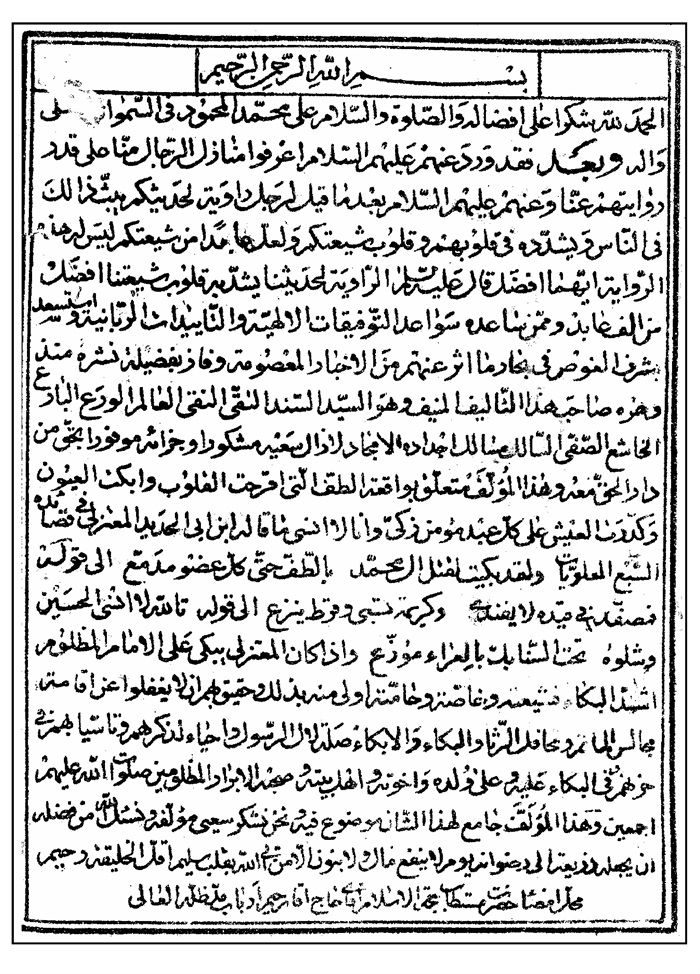 بسم الله الرحمن الرحيم
الحمد لله شكرا على افضاله والصلوة والسلام على محمد المحمود في السموات
واله وبعد فقد ورد عنهم عليهم السلام اعرفوا منازل الرجال منا على قدر
رواياتهم عنا وعنهم عليهم السلام بعد ما قيل رجل راوية لحديثكم يبث ذالك
في الناس ويشدده في قلوبهم وقلوب شيعتكم ولعل عابدا من شيعتكم ليس له هذه
الرواية ايهما افضل قال الراوية لحديثنا يشد به قلوب شيعتنا افضل
من الف عابد وممن ساعده سواعد التوفيقات الالهية والتاييدات الربانية واستسعد
بشرف الغوص في بحار ما اثر عنهم من الاخبار المعصومة وفاز بفضيلة نشره
وهره صاحب هذا التاليف المنيف وهو السيد السند التقي النقي العالم الورع البارع
الخاشع الصفي السالك مسالك اجداده الامجاد لازال سعيه مشكورا وجزائه موفورا بحق من
دار الحق معه وهذا المؤلف متعلق بواقعة الطف التي اقرحت القلوب وابكت العيون
وكدرت العيش على كل عبد مومن زكي وانا لا انسى ما قاله ابن ابي الحديد المعتزلي في قصائده
السبع العلويات ولقد بكيت لقتل ال محمد بالطف حتى كل عضو مدمع الى قوله
فمصفد في قيده لا يفتدى وكريمة تسبى وقرط ينزع الى قوله تالله لا انسى الحسين
وشلوه تحت السنابك بالعراء موزع واذا كان المعتزلي يبكي على الامام المظلوم
اشد البكاء فشيعته وخاصته اولى منه بذلك وحقيق بهم ان لا يغفلوا عن اقامة
مجالس الماتم ومحافل الرثاء والبكاء والابكاء صلة لال الرسول واحياء لذكرهم وتاسيا بهم في
حزنهم في البكاء عليه وعلى ولده واخوته واهل بيته وصحبه الابرار المظلومين صلوات الله عليهم
اجمعين وهذا المؤلف جامع لهذا الشان موضوع فيه ونحن نشكر سعي مؤلفه ونسئل الله من فضله
ان يجعله ذريعة الى رضوانه يوم لا ينفع مال ولا بنون الا من اتى الله بقلب سليم اقل الخليقة رحيم
محل امضاء حضرت مستطاب حجة الاسلام اقاي حاج اقا رحيم ارباب مد ظله العالى